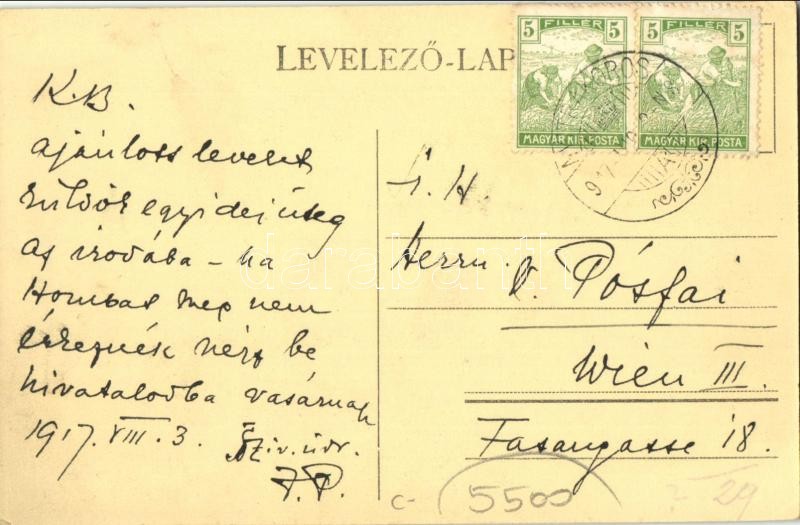 LEVELEZŐ-LAP
5 FILLÉR 5
MAGYAR KIR. POSTA
5 FILLÉR 5
MAGYAR KIR. POSTA
K.B.
ajánlott levelet
küldök egyidejűleg
az irodába – ha
Hombat meg nem
érkeznék nézz be
hivatalodba vasárnap
1917. VIII. 3.
Sziv. üdv.
F.P.
S. H.
Herrn v. Pósfai
Wien III.
Fasangasse 18.
C-
5500
29
darabanth